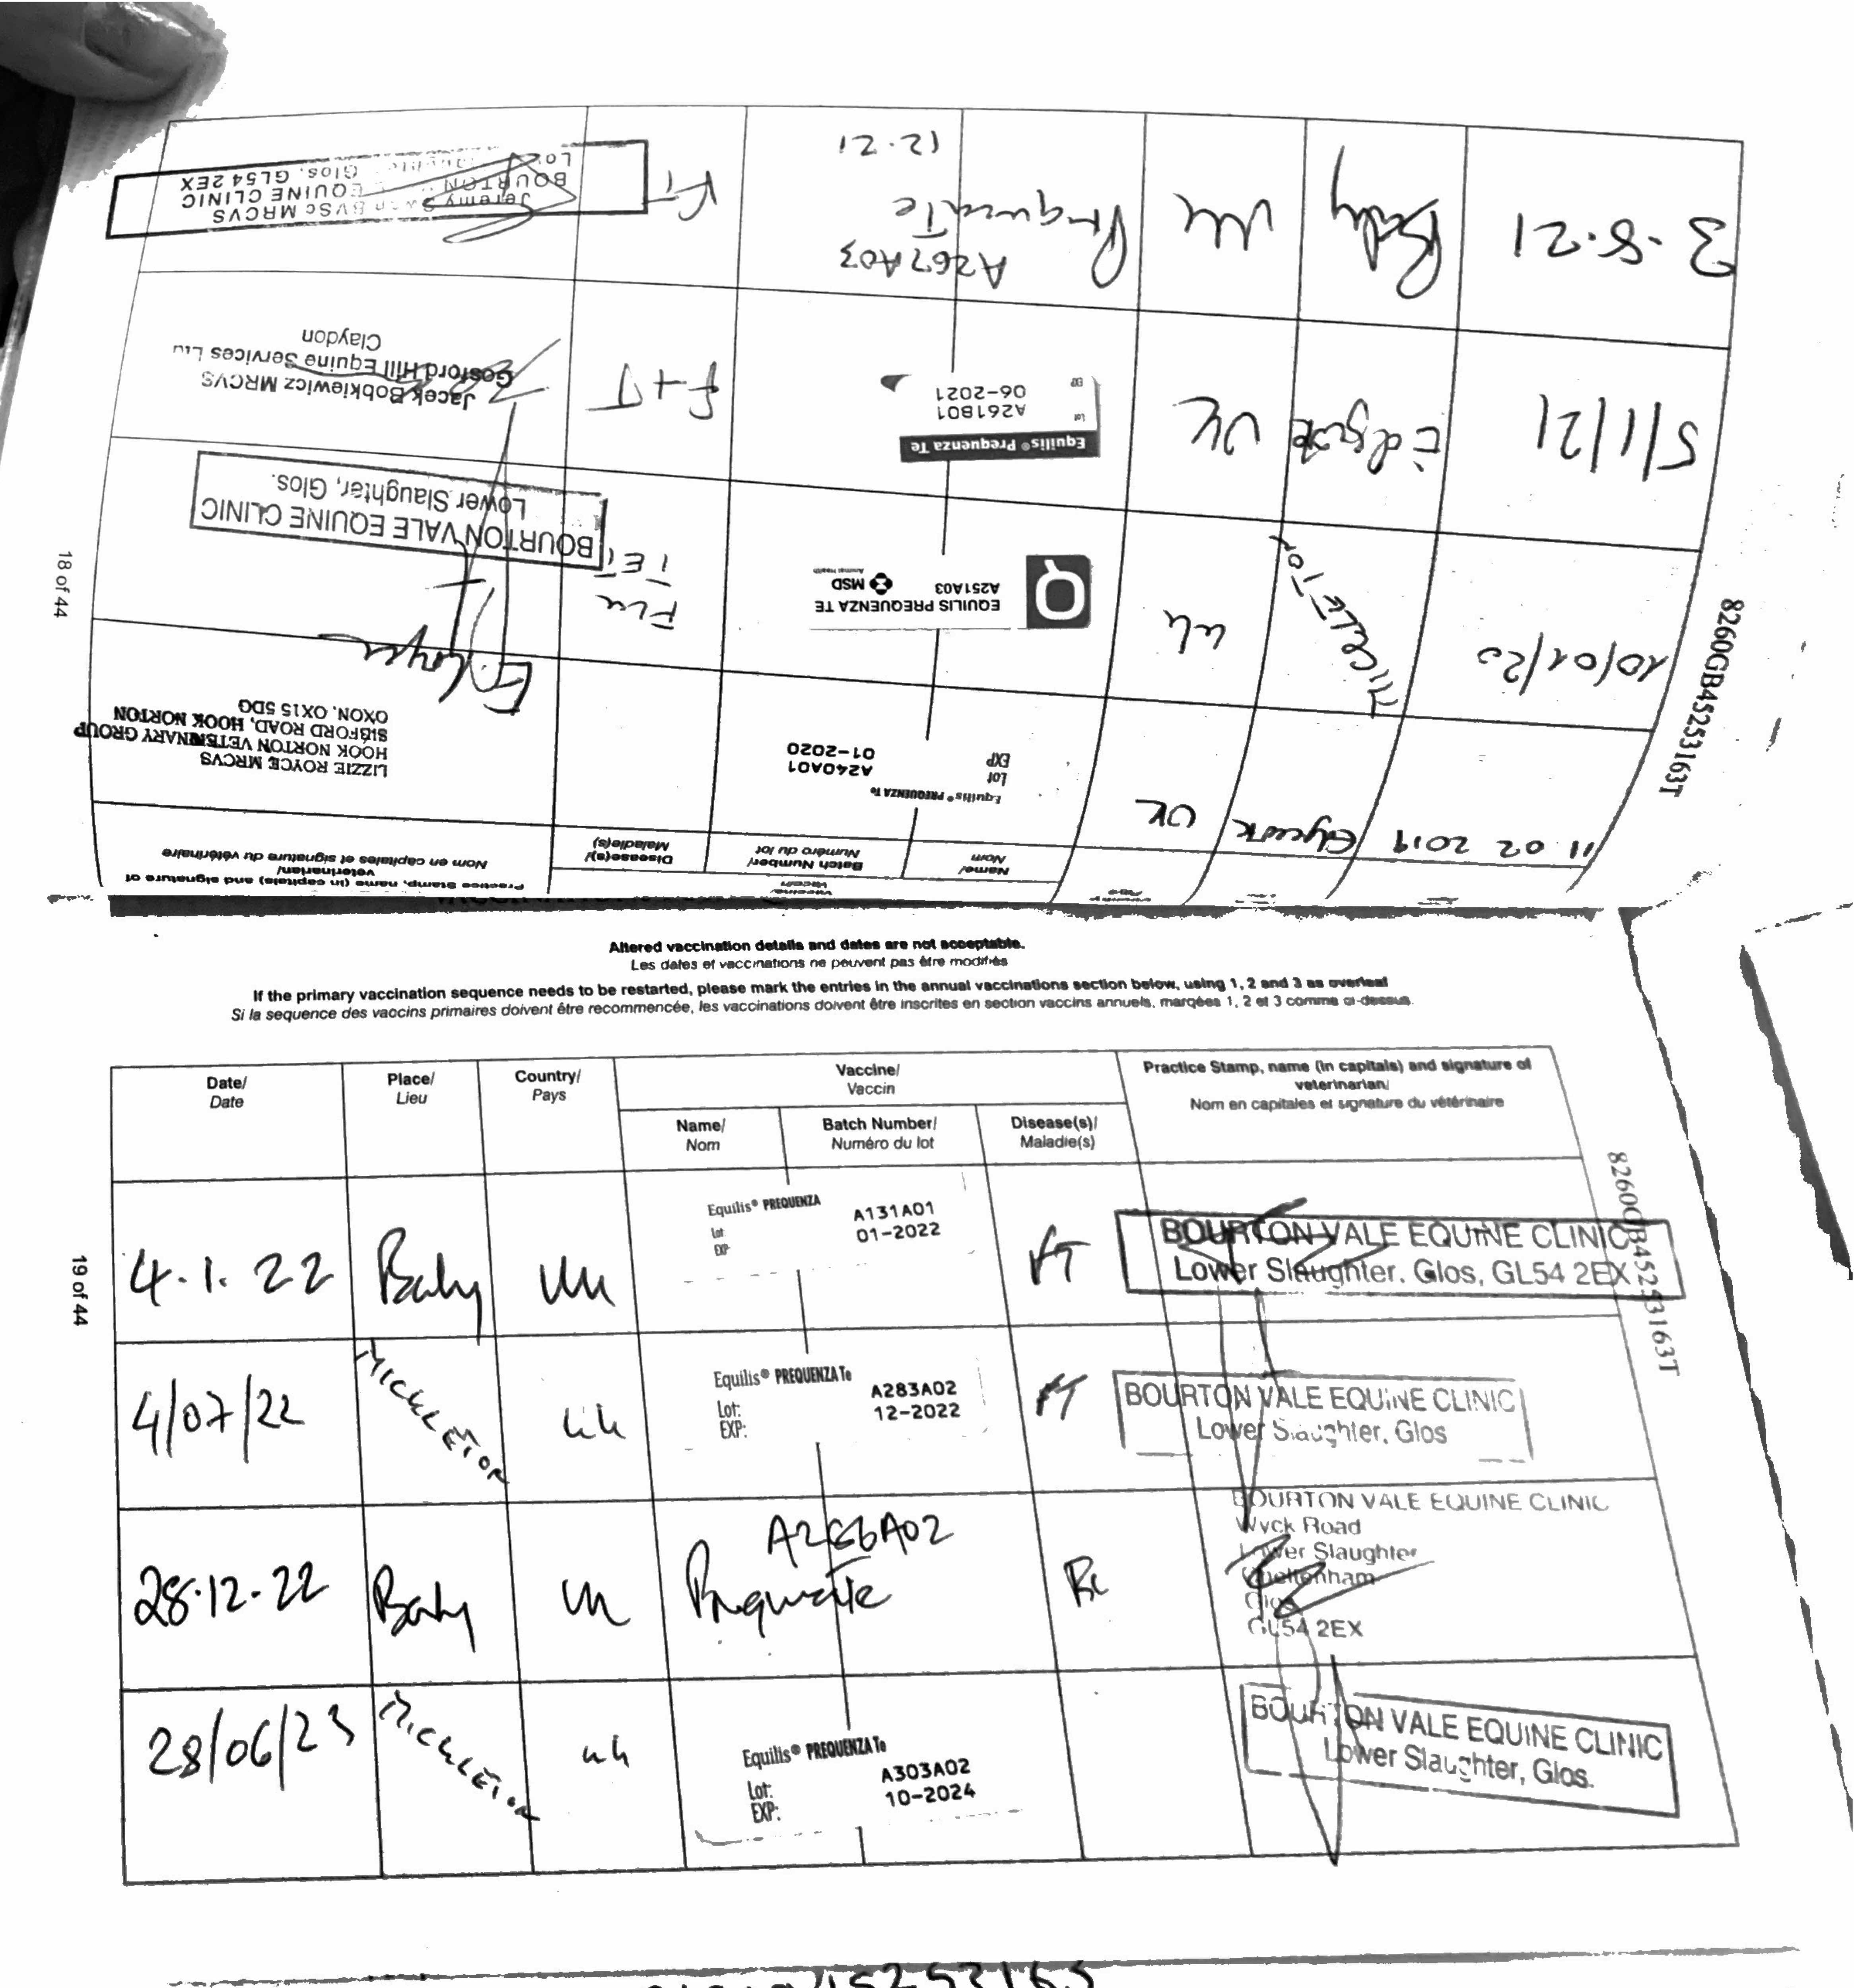 18 of 44
8260GB45253163T
Practice Stamp, name (in capitals) and signature of
veterinarian/
Nom en capitales et signature du vétérinaire
Disease(s)/
Maladie(s)
Batch Number/
Numéro du lot
Name/
Nom
11 02 2019
UK
Equilis® PREQUENZA Te
Lot A240A01
EXP 01-2020
LIZZIE ROYCE MRCVS
HOOK NORTON VETERINARY GROUP
SIBFORD ROAD, HOOK NORTON
OXON. OX15 5DG
10/01/20
MICKLETON
uk
EQUILIS PREQUENZA TE
A251A03
MSD
Animal Health
Q
Flu
TET
BOURTON VALE EQUINE CLINIC
Lower Slaughter, Glos.
5/1/21
UK
Equilis® Prequenza Te
Lot A261B01
EXP 06-2021
F+T
Jacek Bobkiewicz MRCVS
Gosford Hill Equine Services Ltd
Claydon
3.8.21
UK
A267A03
12.21
FT
Jeremy Swan BVSc MRCVS
BOURTON VALE EQUINE CLINIC
Glos. GL54 2EX
Altered vaccination details and dates are not acceptable.
Les dates et vaccinations ne peuvent pas être modifiés
If the primary vaccination sequence needs to be restarted, please mark the entries in the annual vaccinations section below, using 1, 2 and 3 as overleaf
Si la sequence des vaccins primaires doivent être recommencée, les vaccinations doivent être inscrites en section vaccins annuels, marqées 1, 2 et 3 comme ci-dessus.
19 of 44
8260GB45253163T
Date/
Date
Place/
Lieu
Country/
Pays
Vaccine/
Vaccin
Name/
Nom
Batch Number/
Numéro du lot
Disease(s)/
Maladie(s)
Practice Stamp, name (in capitals) and signature of
veterinarian/
Nom en capitales et signature du vétérinaire
4.1.22
UK
Equilis® PREQUENZA
Lot A131A01
EXP 01-2022
FT
BOURTON VALE EQUINE CLINIC
Lower Slaughter, Glos, GL54 2EX
4/07/22
MICKLETON
uk
Equilis® PREQUENZA Te
Lot: A283A02
EXP: 12-2022
FT
BOURTON VALE EQUINE CLINIC
Lower Slaughter, Glos
28.12.22
UK
A286A02
BOURTON VALE EQUINE CLINIC
Wyck Road
Lower Slaughter
Cheltenham
Glos
GL54 2EX
28/06/23
MICKLETON
uk
Equilis® PREQUENZA Te
Lot: A303A02
EXP: 10-2024
BOURTON VALE EQUINE CLINIC
Lower Slaughter, Glos.